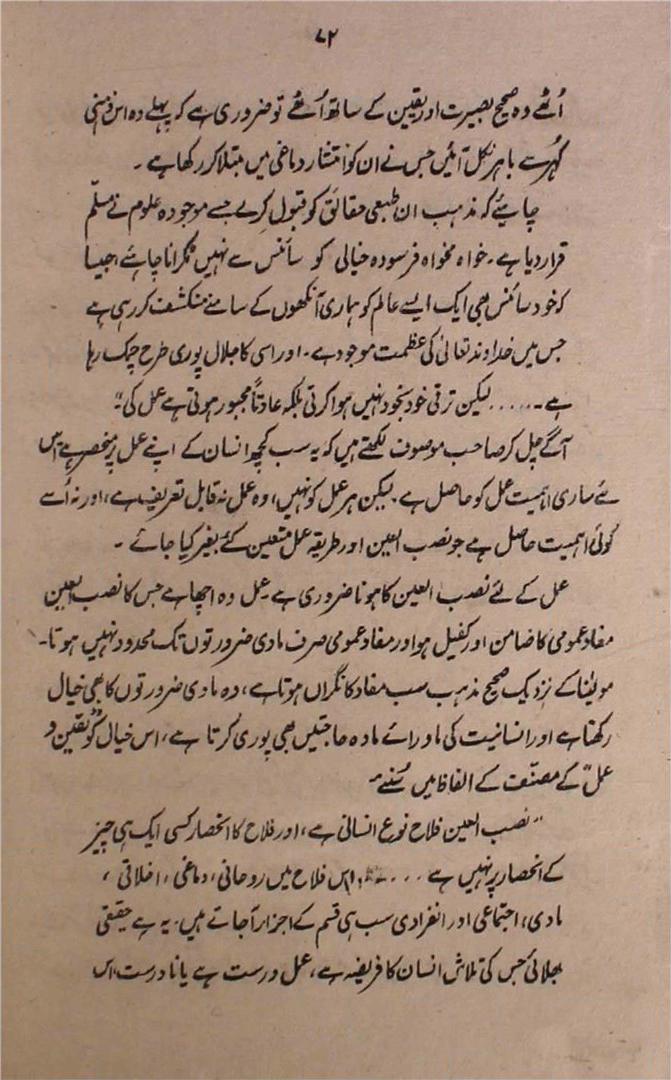 ۷۲
اُٹھے وہ صحیح بصیرت اور یقین کے ساتھ اُٹھے تو ضروری ہے کہ پہلے وہ اس ذہنی
کہُرسے باہر نکل آئیں جس نے ان کو انتشار دماغی میں مبتلا کر رکھا ہے ۔
چاہیئے کہ مذہب ان طبعی حقائق کو قبول کرلے جسے موجودہ علوم نے مسلّم
قرار دیا ہے ۔ خواہ مخواہ فرسودہ خیالی کو سائنس سے نہیں ٹکرانا چاہئے ، جیسا
کہ خود سائنس بھی ایک ایسے عالم کو ہماری آنکھوں کے سامنے منکشف کر رہی ہے
جس میں خداوند تعالیٰ کی عظمت موجود ہے ۔ اور اسی کا جلال پوری طرح چمک رہا
ہے ۔ ..... لیکن ترقی خود بخود نہیں ہوا کرتی بلکہ عادتاً مجبور ہوتی ہے عمل کی “
آگے چل کر صاحب موصوف لکھتے ہیں کہ یہ سب کچھ انسان کے اپنے عمل پر منحصر ہے اس
لئے ساری اہمیت عمل کو حاصل ہے . لیکن ہر عمل کو نہیں ، وہ عمل نہ قابل تعریف ہے ، اور نہ اُسے
کوئی اہمیت حاصل ہے جو نصب العین اور طریقہ عمل متعین کئے بغیر کیا جائے ۔
عمل کے لئے نصب العین کا ہونا ضروری ہے ۔ عمل وہ اچھا ہے جس کا نصب العین
مفاد عمومی کا ضامن اور کفیل ہو اور مفاد عمومی صرف مادی ضرورتوں تک محدود نہیں ہوتا ۔
مولیٰنا کے نزدیک صحیح مذہب سب مفاد کا نگراں ہوتا ہے ، وہ مادی ضرورتوں کا بھی خیال
رکھتا ہے اور انسانیت کی ماورائے مادہ حاجتیں بھی پوری کرتا ہے ، اس خیال کو ”یقین و
عمل“ کے مصنّف کے الفاظ میں سُنئے ۔
” نصب العین فلاح نوع انسانی ہے ، اور فلاح کا انحصار کسی ایک ہی چیز
کے انحصار پر نہیں ہے . . . . اس فلاح میں روحانی ، دماغی ، اخلاقی ،
مادی ، اجتماعی اور انفرادی سب ہی قسم کے اجزاء آجاتے ہیں . یہ ہے حقیقی
بھلائی جس کی تلاش انسان کا فریضہ ہے ، عمل درست ہے یا نا درست ، اس